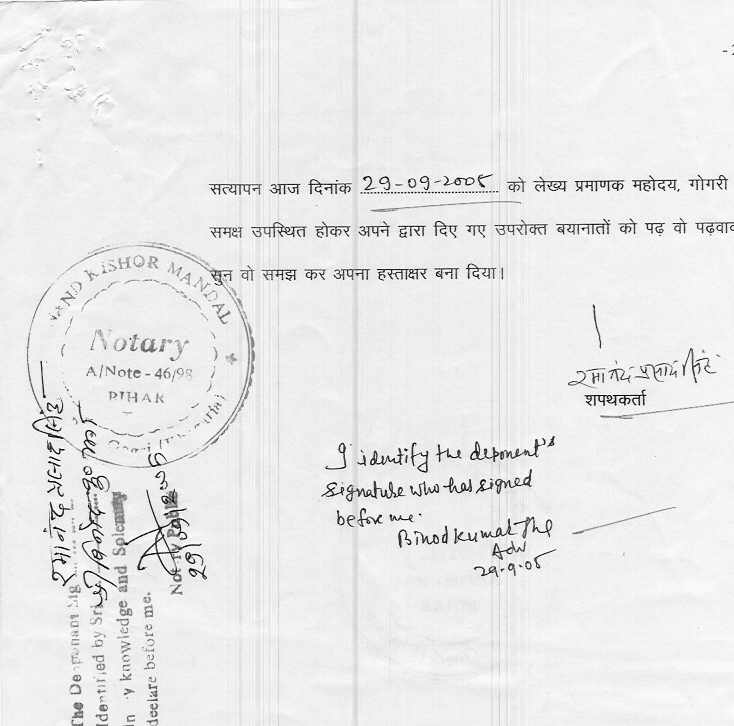 सत्यापन आज दिनांक 29-09-2005 को लेख्य प्रमाणक महोदय, गोगरी
समक्ष उपस्थित होकर अपने द्वारा दिए गए उपरोक्त बयानातों को पढ़ वो पढ़वा
सुन वो समझ कर अपना हस्ताक्षर बना दिया।
रमानंद प्रसाद सिंह
शपथकर्ता
I identify the deponent's
signature who has signed
before me.
Binod Kumar Jha
Adv
29-9-05
NAND KISHOR MANDAL
Notary
A/Note - 46/98
BIHAR
रमानंद प्रसाद सिंह
The Deponant Sig
Identified by Sri
knowledge and Solemny
declare before me.
Notry Public
29/09/2005